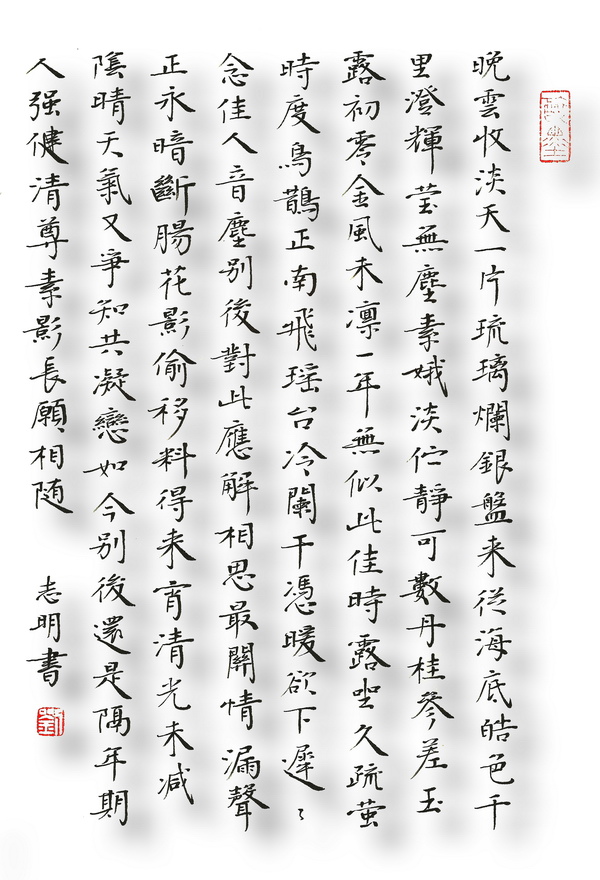 晚雲收淡天一片琉璃爛銀盤来從海底皓色千
里澄輝瑩無塵素娥淡佇靜可數丹桂參差玉
露初零金風未凛一年無似此佳時露坐久疏螢
時度烏鵲正南飛瑶台冷闌干憑暖欲下遲〻
念佳人音塵别後對此應解相思最關情漏聲
正永暗斷腸花影偷移料得来宵清光未减
陰晴天氣又爭知共凝戀如今别後還是隔年期
人强健清尊素影長願相随
志明書